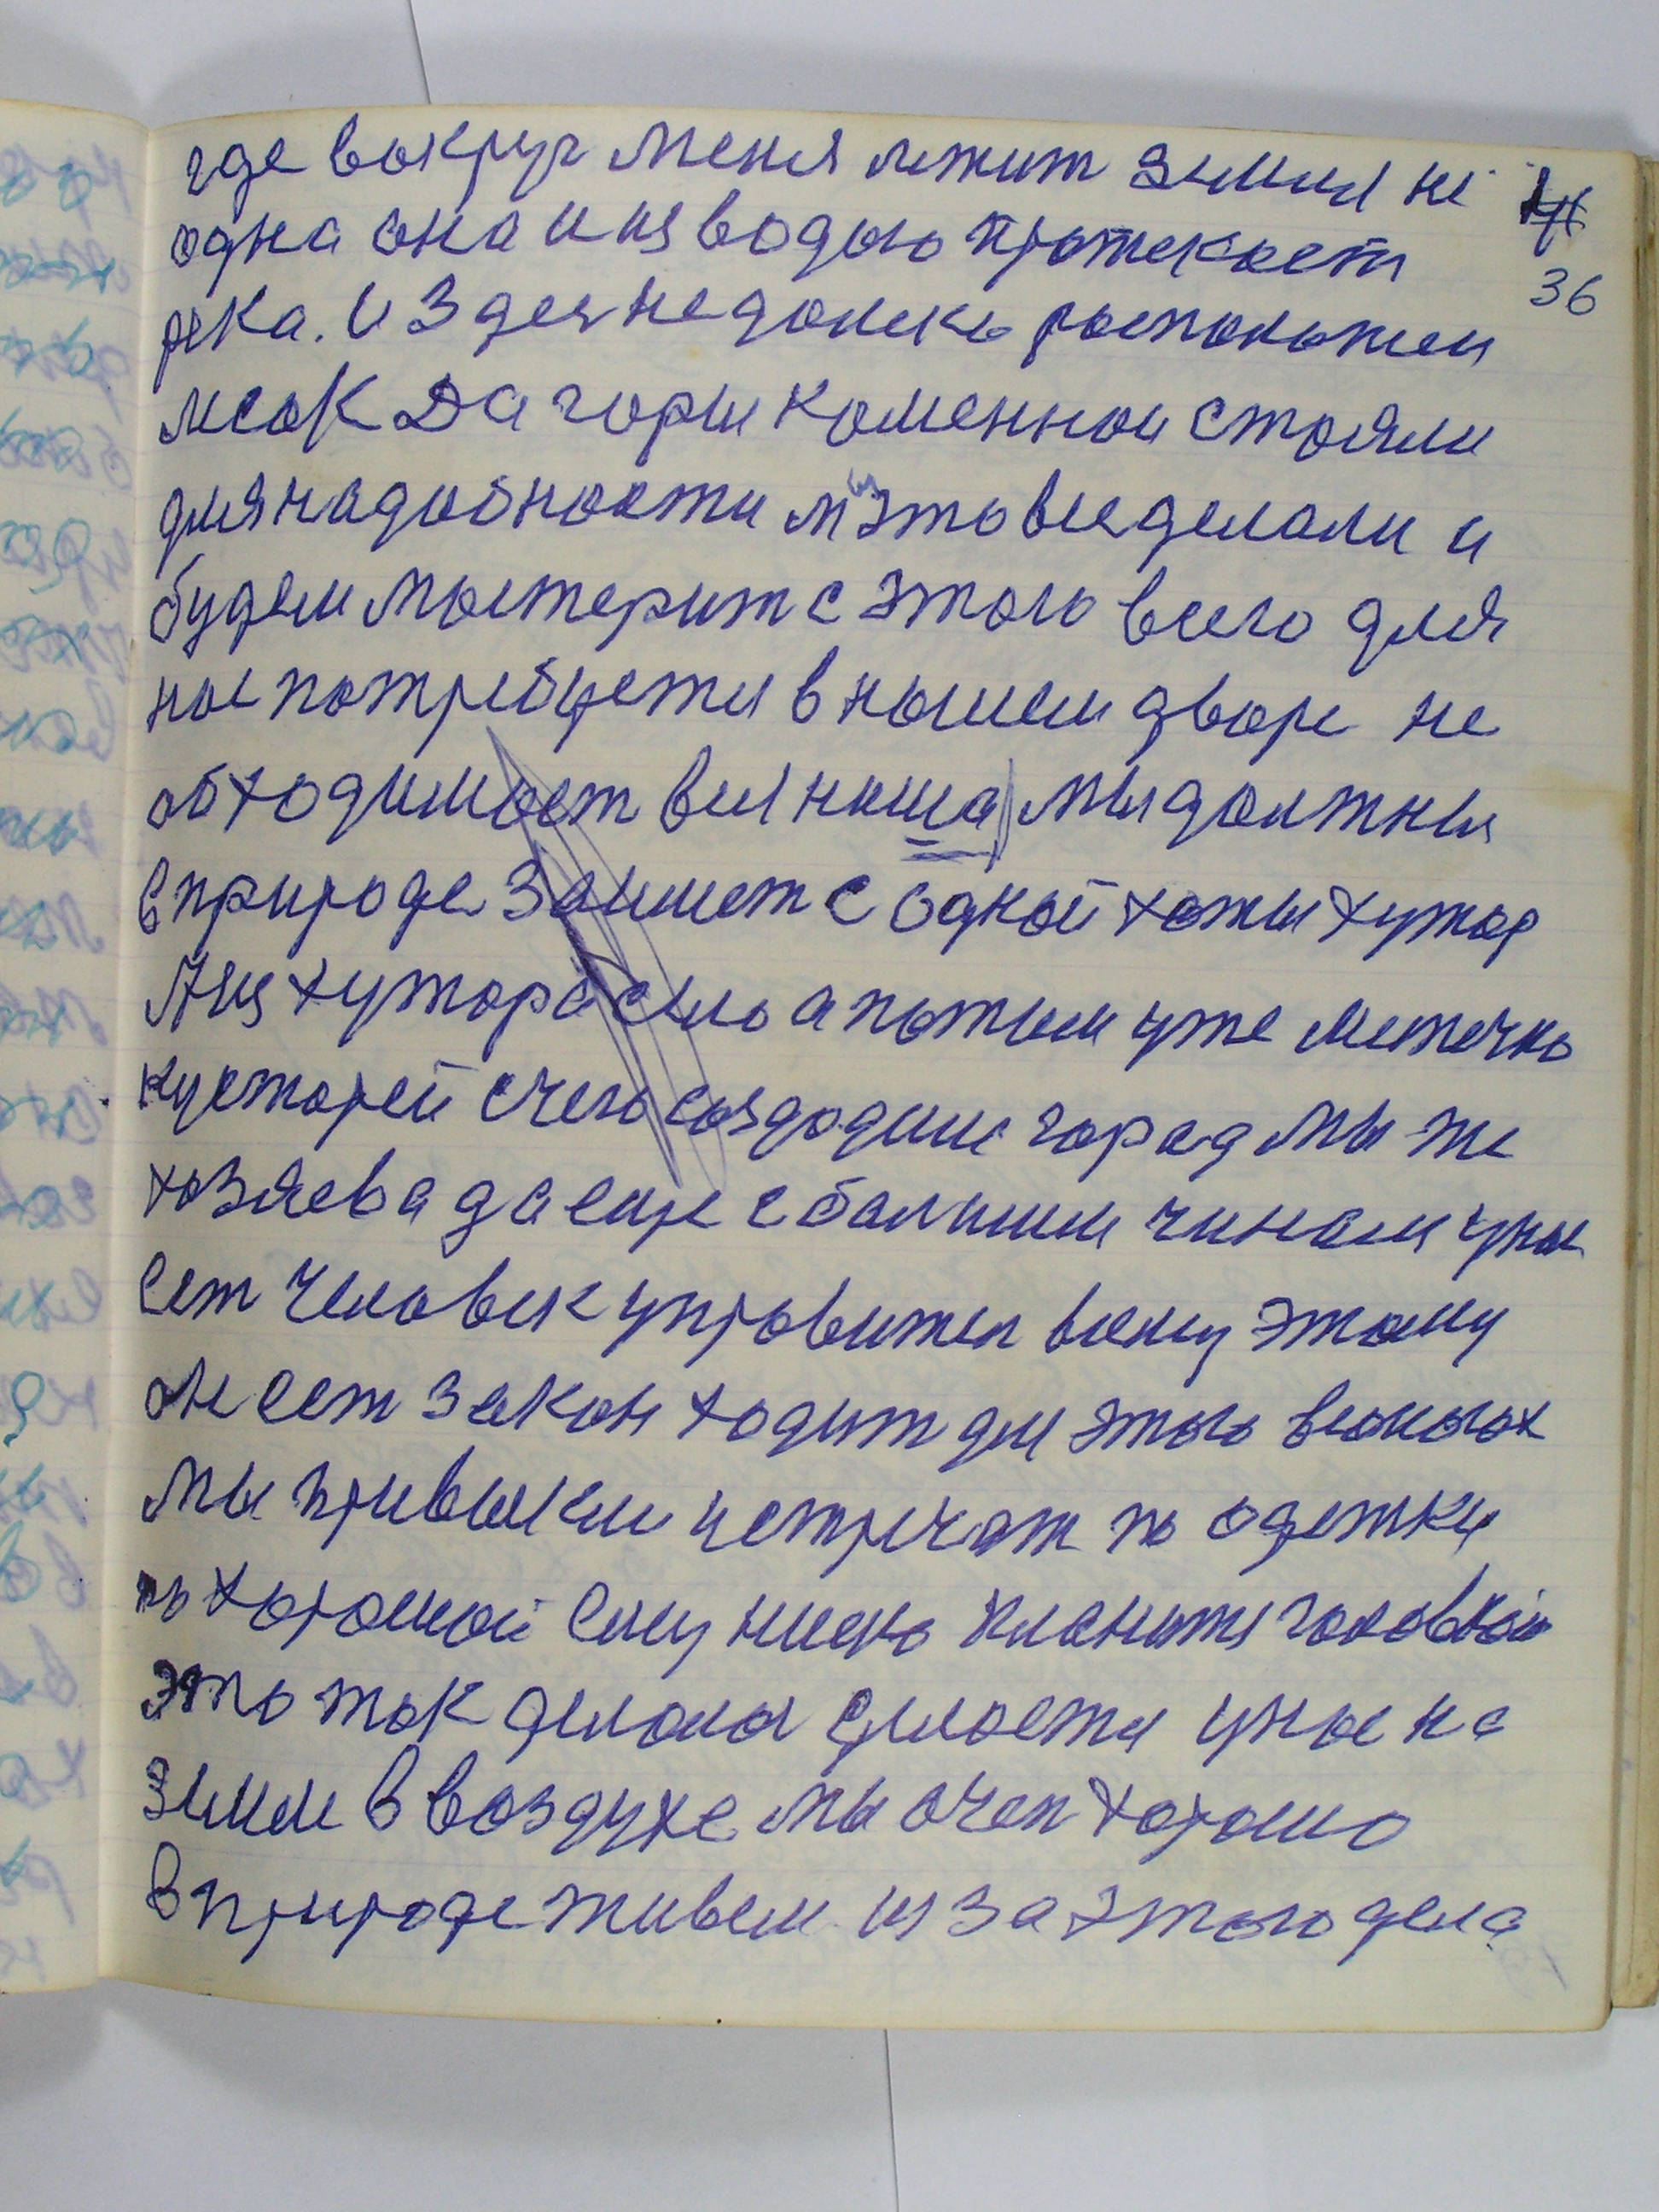 где вокруг меня лежит зимля не
36
одна она и из водою протекаеть
река. И здея недалеко росположен
лесок Да горы каменнои стояли
для надобности мы это все делали и
будем мостерит с этого всего для
нас потребуется в нашем дворе не
обходимост вся наша мы должны
в природе займет с одной хаты хутор
А из хутора село а потом уже местечко
кустарей с чего создодим город мы же
хозяева да еще с балшим чином у нас
ест человек управител всему этому
он ест закон ходит для этого в
мы привыкли устричат по одежки
по хорошой ему низко кланится головкой
это так делалос делается у нас на
зимле в воздухе мы очен хорошо
в природе живем из за этого дела